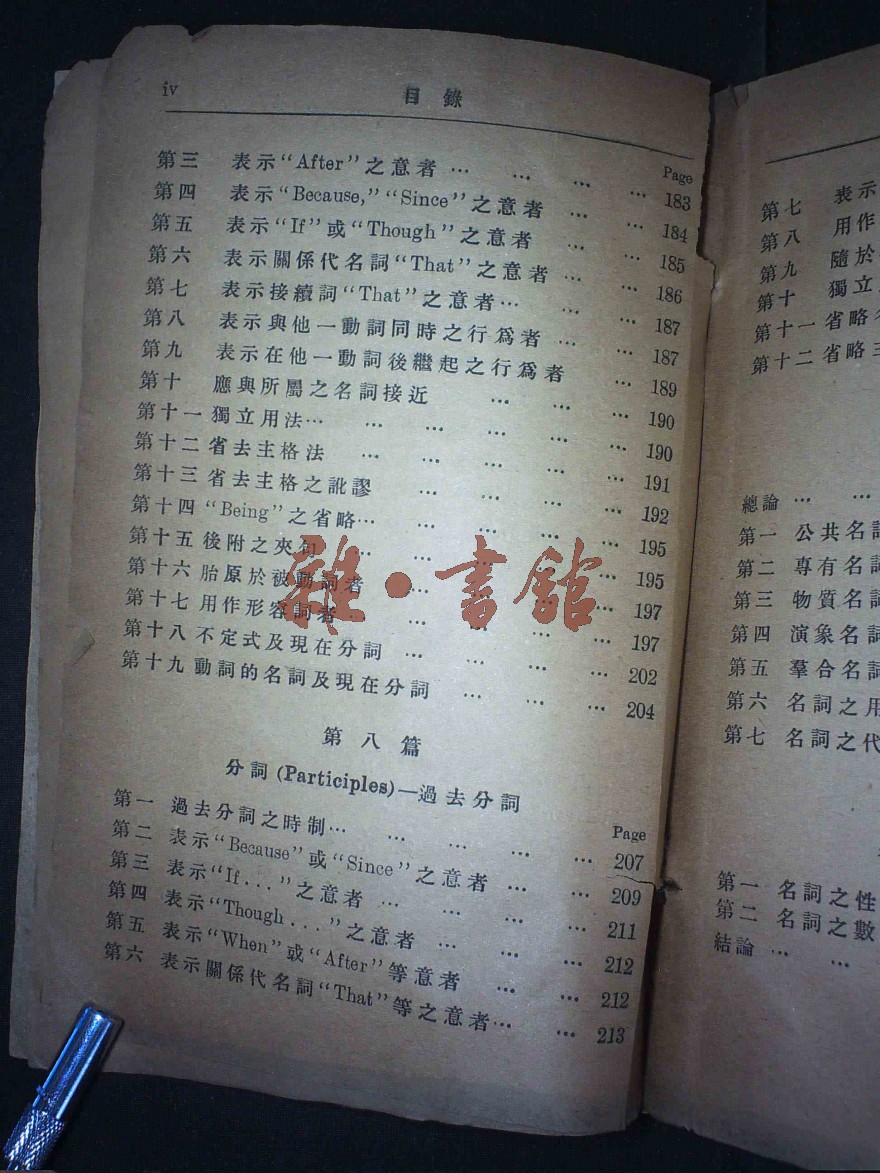 iv 目錄
Page
第三 表示“After”之意者 … … … … 183
第四 表示“Because,”“Since”之意者 … … 184
第五 表示“If”或“Though”之意者 … … 185
第六 表示關係代名詞“That”之意者 … … 186
第七 表示接續詞“That”之意者… … … 187
第八 表示與他一動詞同時之行爲者 … … 187
第九 表示在他一動詞後繼起之行爲者 … 189
第十 應與所屬之名詞接近 … … … 190
第十一 獨立用法… … … … … … 190
第十二 省去主格法 … … … … … 191
第十三 省去主格之訛謬 … … … … 192
第十四 “Being”之省略… … … … … 195
第十五 後附之夾句 … … … … … 195
第十六 胎原於被動詞者 … … … … 197
第十七 用作形容詞者 … … … … 197
第十八 不定式及現在分詞 … … … … 202
第十九 動詞的名詞及現在分詞 … … … 204
第八篇
分詞(Participles)—過去分詞
Page
第一 過去分詞之時制… … … … … 207
第二 表示“Because”或“Since”之意者 … … 209
第三 表示“If...”之意者 … … … … 211
第四 表示“Though...”之意者 … … … 212
第五 表示“When”或“After”等意者 … … 212
第六 表示關係代名詞“That”等之意者… … 213
雜·書館
第七 表示
第八 用作
第九 隨於
第十 獨立
第十一 省略
第十二 省略
總論 … …
第一 公共名詞
第二 專有名詞
第三 物質名詞
第四 演象名詞
第五 羣合名詞
第六 名詞之用
第七 名詞之代
第一 名詞之性
第二 名詞之數
結論 … …